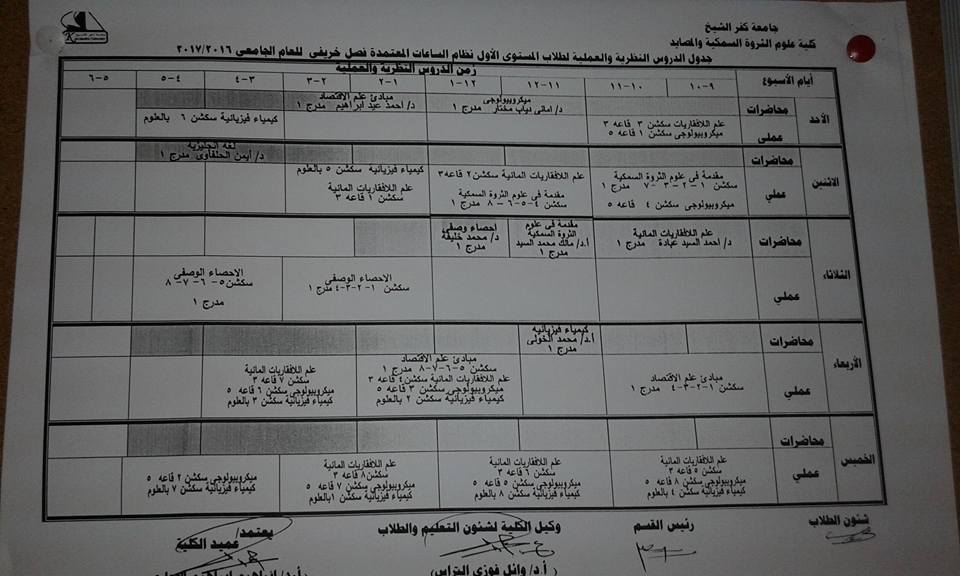 جامعة كفر الشيخ
كلية علوم الثروة السمكية والمصايد
جدول الدروس النظرية والعملية لطلاب المستوى الأول نظام الساعات المعتمدة فصل خريفى للعام الجامعى ٢٠١٧/٢٠١٦
أيام الأسبوع
زمن الدروس النظرية والعملية
٩-١٠
١٠-١١
١١-١٢
١٢-١
١-٢
٢-٣
٣-٤
٤-٥
٥-٦
الأحد
محاضرات
ميكروبيولوجى
د/ امانى دياب مختار مدرج ١
مبادئ علم الاقتصاد
د/ احمد عيد ابراهيم مدرج ١
عملى
علم اللافقاريات سكشن ٣ قاعه ٣
ميكروبيولوجى سكشن ١ قاعه ٥
كيمياء فيزيائية سكشن ٦ بالعلوم
الاثنين
محاضرات
لغه انجليزية
د/ أيمن الحلفاوى مدرج ١
عملي
مقدمة فى علوم الثروة السمكية
سكشن ١-٢-٣-٧ مدرج ١
ميكروبيولوجى سكشن ٤ قاعه ٥
علم اللافقاريات المائية سكشن ٢ قاعه ٣
مقدمة فى علوم الثروة السمكية
سكشن ٤-٥-٦-٨ مدرج ١
كيمياء فيزيائية سكشن ٥ بالعلوم
علم اللافقاريات المائية
سكشن ١ قاعه ٣
الثلاثاء
محاضرات
علم اللافقاريات المائية
د/ احمد السيد عبادة مدرج ١
مقدمة فى علوم
الثروة السمكية
أ.د/ مالك محمد السيد
مدرج ١
احصاء وصفى
د/ محمد خليفة
مدرج ١
عملي
الاحصاء الوصفى
سكشن ١-٢-٣-٤ مدرج ١
الاحصاء الوصفى
سكشن ٥-٦-٧-٨
مدرج ١
الأربعاء
محاضرات
كيمياء فيزيائيه
أ.د/ محمد الخولى
مدرج ١
عملي
مبادئ علم الاقتصاد
سكشن ١-٢-٣-٤ مدرج ١
مبادئ علم الاقتصاد
سكشن ٥-٦-٧-٨ مدرج ١
علم اللافقاريات المائية سكشن ٤ قاعه ٣
ميكروبيولوجى سكشن ٣ قاعه ٥
كيمياء فيزيائية سكشن ٢ بالعلوم
علم اللافقاريات المائية
سكشن ٧ قاعه ٣
ميكروبيولوجى سكشن ٦ قاعه ٥
كيمياء فيزيائية سكشن ٣ بالعلوم
الخميس
محاضرات
عملي
علم اللافقاريات المائية
سكشن ٥ قاعه ٣
ميكروبيولوجى سكشن ٨ قاعه ٥
كيمياء فيزيائية سكشن ٤ بالعلوم
علم اللافقاريات المائية
سكشن ٦ قاعه ٣
ميكروبيولوجى سكشن ٥ قاعه ٥
كيمياء فيزيائية سكشن ٨ بالعلوم
علم اللافقاريات المائية
سكشن ٨ قاعه ٣
ميكروبيولوجى سكشن ٧ قاعه ٥
كيمياء فيزيائية سكشن ١ بالعلوم
ميكروبيولوجى سكشن ٢ قاعه ٥
كيمياء فيزيائية سكشن ٧ بالعلوم
شئون الطلاب
رئيس القسم
وكيل الكلية لشئون التعليم والطلاب
يعتمد/
عميد الكلية
(أ.د/ وائل فوزى التراس)